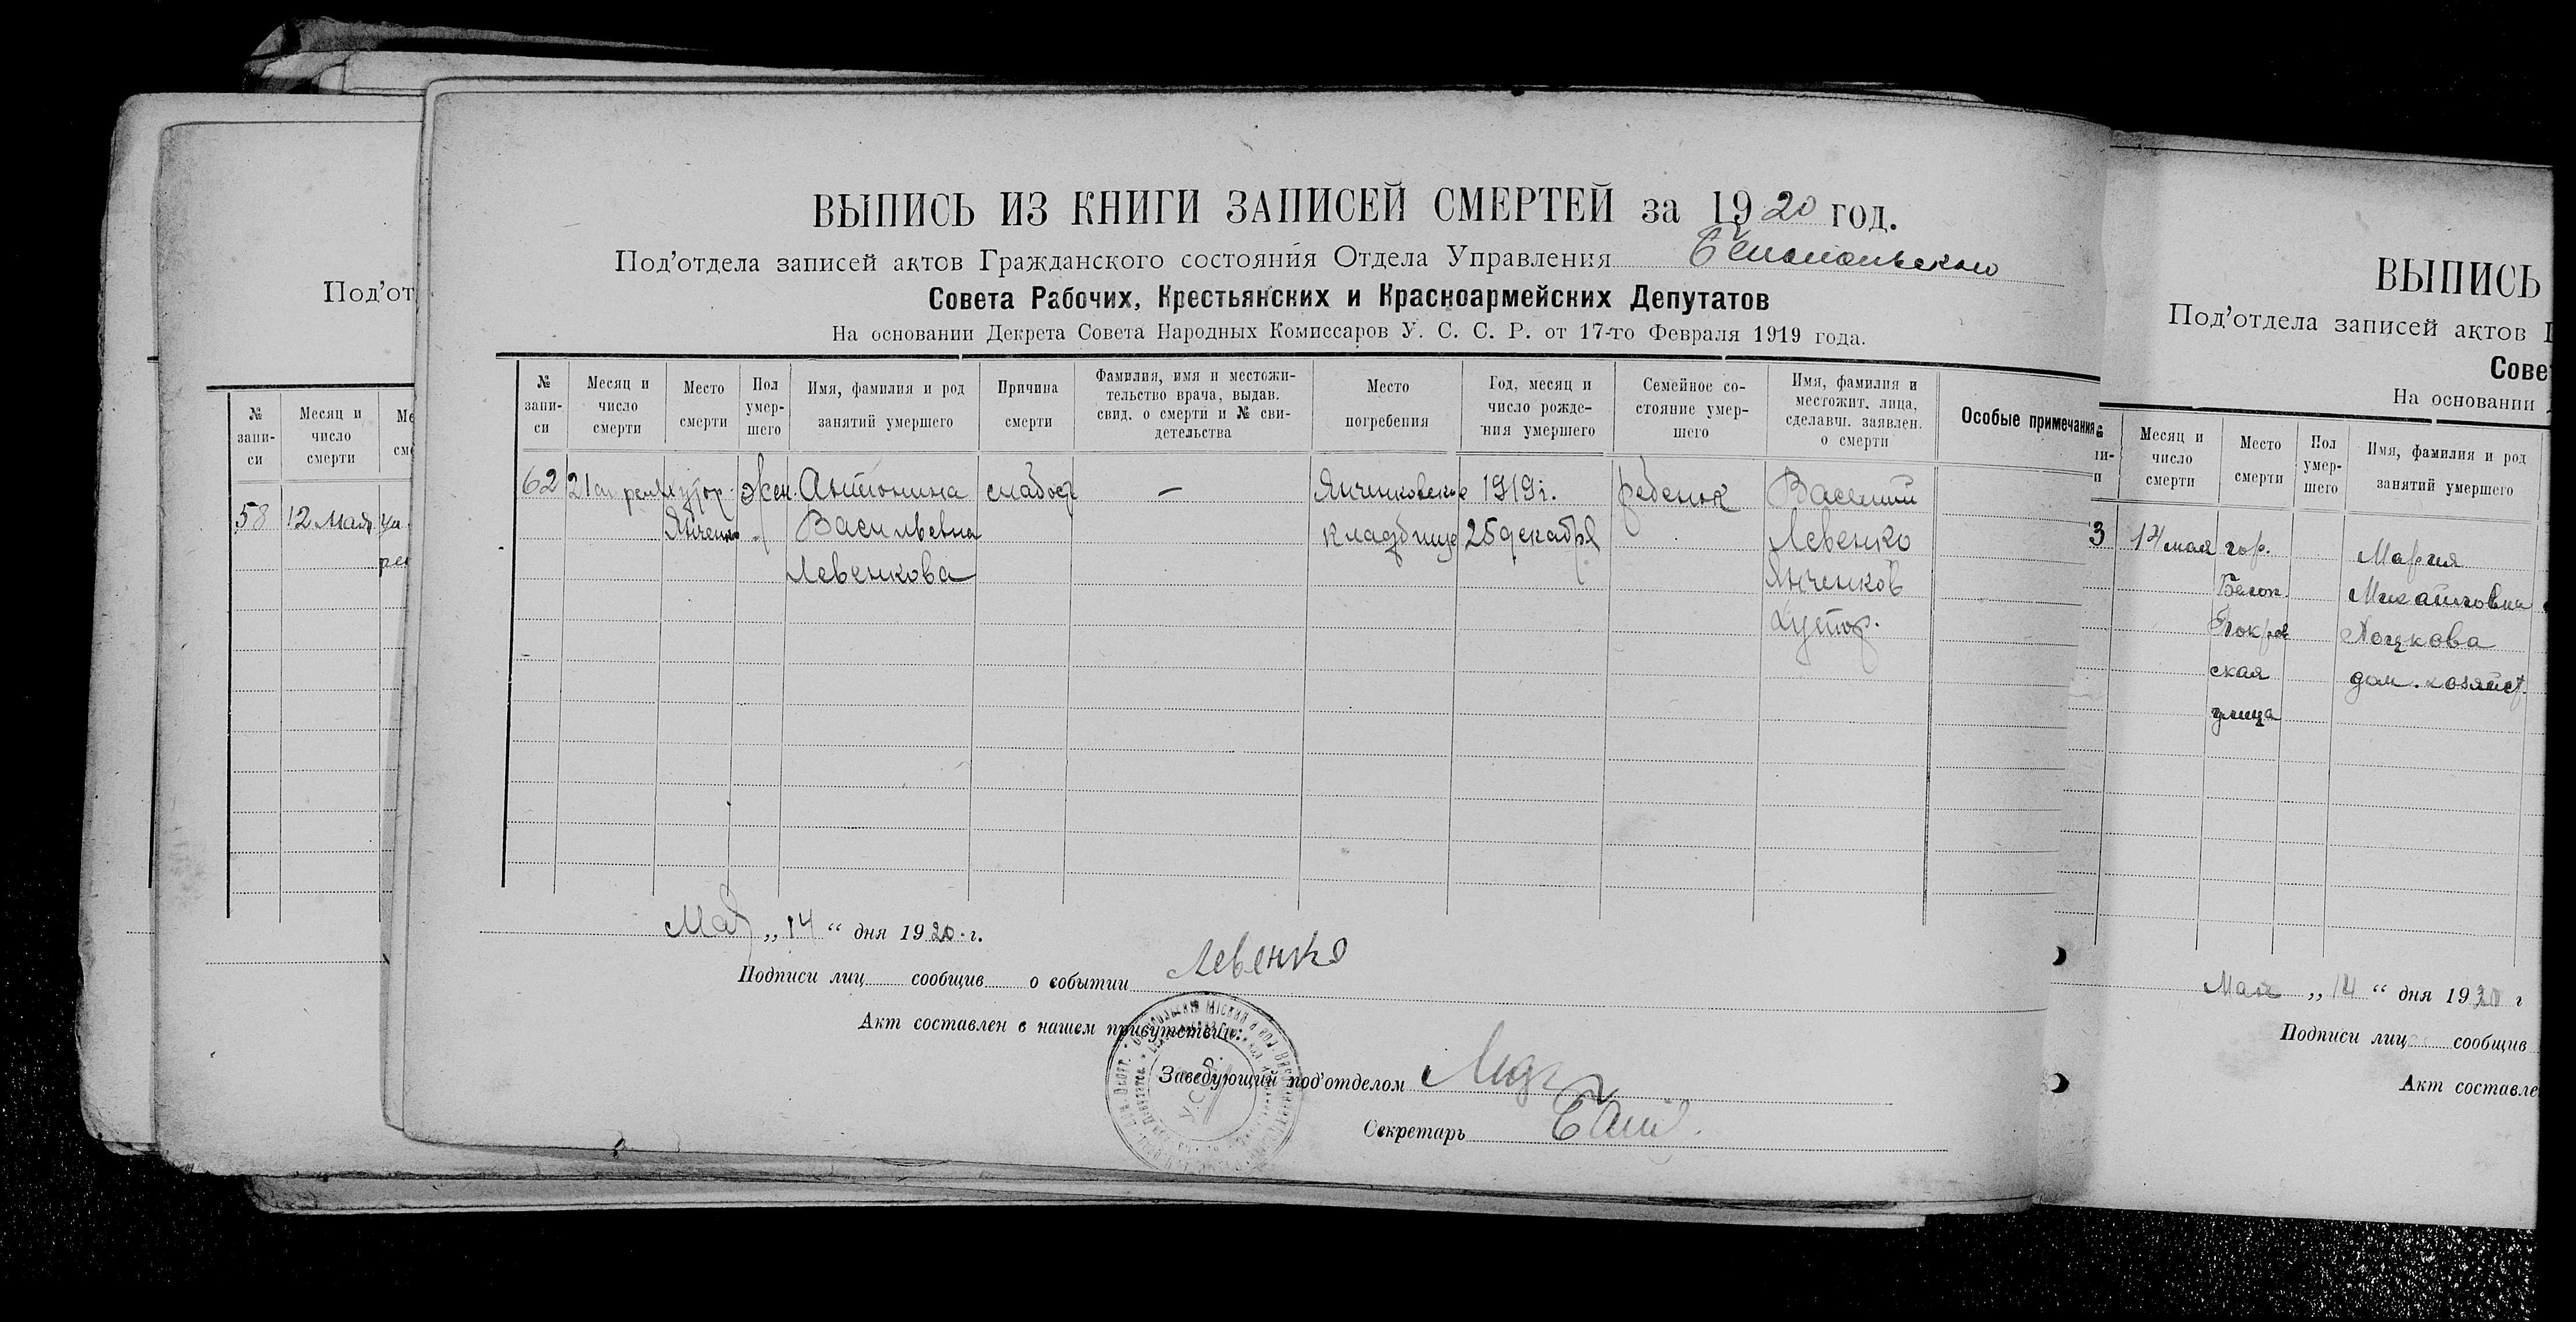 ВЫПИСЬ ИЗ КНИГИ ЗАПИСЕЙ СМЕРТЕЙ за 1920 год.
Под'отдела записей актов Гражданского состояния Отдела Управления
Совета Рабочих, Крестьянских и Красноармейских Депутатов
На основании Декрета Совета Народных Комиссаров У. С. С. Р. от 17-го Февраля 1919 года.
№ запи-си
Месяц и число смерти
Место смерти
Пол умер-шего
Имя, фамилия и род занятий умершего
Причина смерти
Фамилия, имя и местожи-тельство врача, выдав. свид. о смерти и № сви-детельства
Место погребения
Год, месяц и число рожде-ния умершего
Семейное со-стояние умер-шего
Имя, фамилия и местожит. лица, сделавш. заявлен. о смерти
Особые примечания
62 21 апреля хутор. жен. Антонина слабост — Янченковское 1919г. ребенок Василий
Янченко Васильевна кладбище 25 декабря Левенко
Левенкова Янченков
хутор.
Мая „14“ дня 1920 г.
Подписи лиц сообщив о событии Левенко
Акт составлен в нашем присутствии:
Заведующий под'отделом
Секретарь
У.С.С.Р.
Под'от
№ запи-си
Месяц и число смерти
Ме
см
58 12 Мая
ВЫПИСЬ
Под'отдела записей актов Г
Сове
На основании
Месяц и число смерти
Место смерти
Пол умер-шего
Имя, фамилия и род занятий умершего
3 14 мая гор. Мария
Белоп. Михайловна
Покров
ская дом. хозяйст.
улица
Мая „14“ дня 1920 г
Подписи лиц сообщив
Акт составле